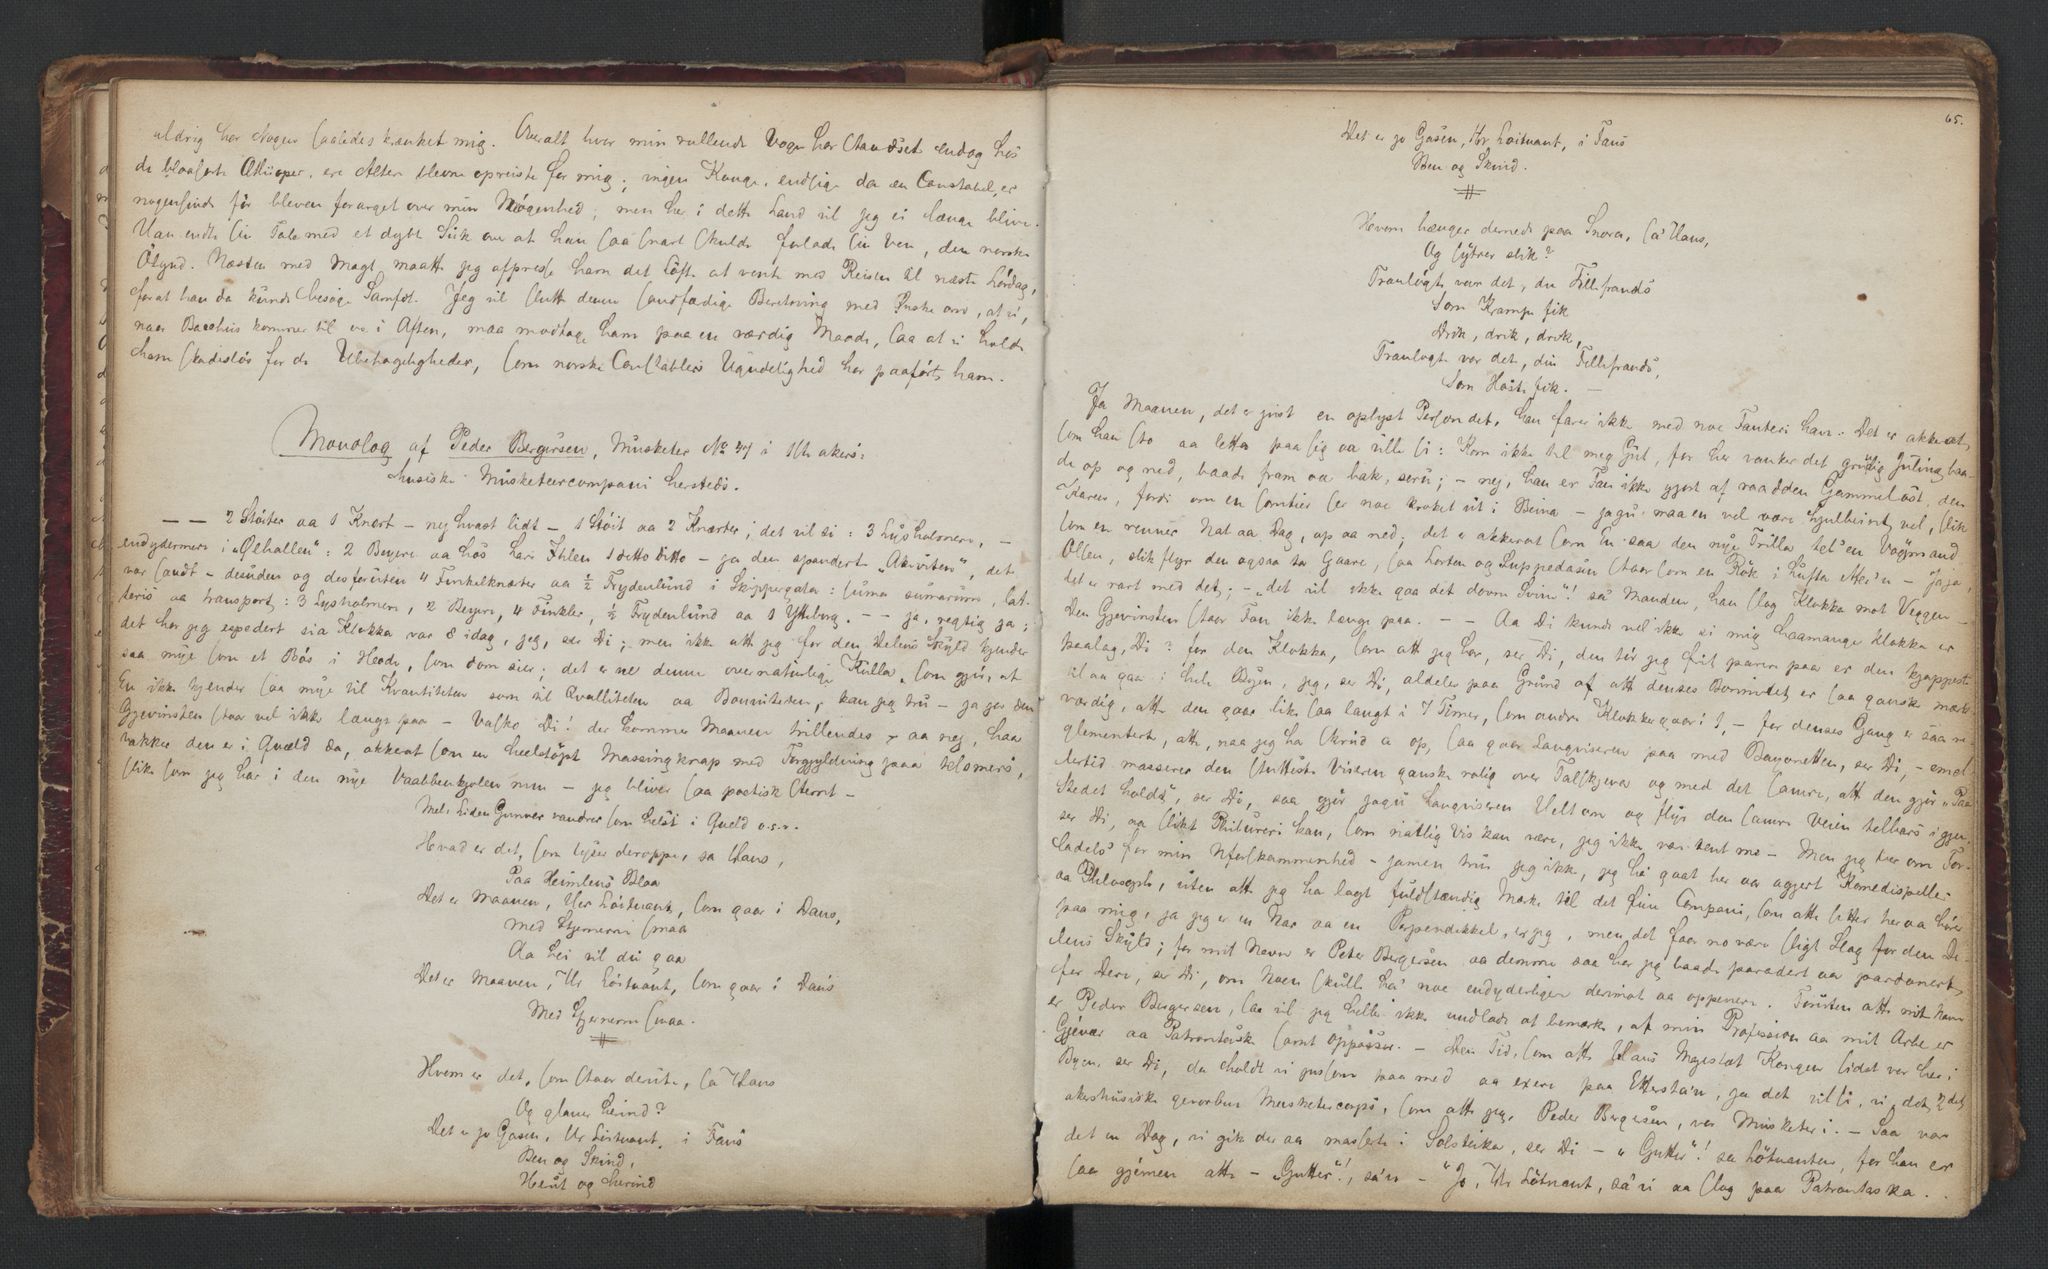 aldrig har Nogen saaledes krænket mig. Overalt hvor min rullende Vogn har standset endog hos
de blaasorte Æthioper, ere Altere blevne opreiste for mig; ingen Konge, endsige da en Constabel, er
nogensinde før bleven forarget over min Nøgenhed; men her i dette Land vil jeg ei længe blive.
Han endte sin Tale med et dybt Suk over at han saa snart skulde forlade sin Ven, den norske
Ølgud. Næsten med Magt maatte jeg afpresse ham det Løfte at vente med Reisen til næste Lördag,
for at han da kunde besøge Samfdt. Jeg vil slutte denne sandfærdige Beretning med Ønske om, at vi,
naar Bacchus kommer til os i Aften, maa modtage ham paa en værdig Maade, saa at vi holde
ham skadesløs for de Ubehageligheder, som norske Constablers Ugudelighed har paaført ham.
Monolog af Peder Bergersen, Musketer No 47 i 1ste akers-
husiske Musketeercompani hersteds.
— — 2 Støiter aa 1 Knert – nej hvast lidt – 1 Støit aa 2 Knærter; det vil si: 3 Lysholmere, –
endydermere i „Ølhallen": 2 Beyere aa hos Lars Ihlen 1 ditto ditto – ja den spanderte „Akiviten", det
var sandt – desuden og desforuten 4 Finkelknæter aa ½ Frydenlund i Skippergata: suma sumarum, lat-
teris aa transport: 3 Lysholmere, 2 Beyere, 4 Finkler, ½ Frydenlund aa 1 Ytteborg. – – ja, regtig ja;
det har jeg expedert sia Klokka var 8 idag, jeg, ser Di; men ikke att jeg for den Delens Skyld kjender
saa mye som et Bøs i Hode, som dom sier; det er no denne overnaturlige Kulla, som gjør, at
En ikke kjender saa mye til Kvantiteten som til Qvalliteten aa Bonniteten, kan jeg tru – ja ja den
Gjevinsten staar vel ikke længe paa – Vasko Di! der kommer Maanen trillendes – aa nej, haa
vakker den er i Quæld da, akkerat som en heelstøpt Massingknap med Forgyldning paa
slike som jeg har i den nye Vaabbenkjolen min – jeg bliver saa poetisk stemt –
Mels Liden Gunver vandrer som helst i Queld o.s.v.
Hvad er det, som lyser deroppe, sa Hans,
Paa Himlens Blaa
Det er Maanen, Her Löitnant, som gaar i Dans,
Med Stjernerne smaa
Aa hei vil du gaa
Det er Maanen, Hr Löitnant, som gaar i Dans
Med Stjernerne smaa.
Hvem er det, som staar derute, sa' Hans
Og glaner herind?
Det er jo Gasen, Hr Löitnant, i Fans
Ben og Skind,
Herut og herind
65.
Det er jo Gasen, Hr Loitnant, i Fans
Ben og Skind.
Hvem hænger dernede paa Snora, sa' Hans,
Og spytrer slik?
Tranlogte var det, du Fillefrands
Som Krampe fik
Drik, drik, drik,
Tranlogte var det, din Fillefrands,
Som Hoste fik. —
Ja Maanen, det er just en oplyst Person det, han farer ikke med noe Fanteri han. Det er akkerat,
som han sto aa letta paa sig aa ville si: Kom ikke til meg Gut, for her vanker det grundig Juling baa-
de op og ned, baade fram aa bak, seru; – nej, han er Fan ikke gjort af raadden Gammelost, den
Karen, fordi om en somtier ser noe kroket ut i Beina – jagu maa en vel være hjulbeint vel, slik
som en renner Nat aa Dag, op aa ned; det er akkerat som En saa den nye Trilla tel'en Vognmand
Olsen, slik flyr den ogsaa ta Gaare, saa Lorten og Suppedasen staar som en Røk i Lufta etter'n – ja ja,
det er rart med det; – „det vil ikke gaa det dovne Svin"! sa Manden, han slog Klokka mot Veggen –
Den Gjevinsten staar Fan ikke længe paa. – – Aa Di kunde vel ikke si mig haamange Klokka er
paalag, Di? for den Klokka, som att jeg har, ser Di, den tør jeg frit parere paa er den kjappeste
til aa gaa i hele Byen, jeg, ser Di, aldeles paa Grund af att denses Bonnitet er saa ganske mærk-
værdig, atte den gaar like saa langt i 7 Timer, som andre Klokker gaar i 1, – for denses Gang er saa re-
glementert, att, naa jeg ha skrud a op, saa gaar Langviseren paa med Bayonetten, ser Di, – emel-
lertid masserer den stutteste Viseren ganske rolig over Talskjeva og med det samme, att den gjør „Paa
Stedet holdt", ser Di, saa gjør jagu Langviseren Velt om og flyr den samme Veien telbars igjen
ser Di, aa slikt Philureri kan, som riktig vis kan være, jeg ikke være tent me – Men jeg ber om For-
ladels' for min Uforskammenhed – jamen trur jeg ikke, jeg ha gaat her aa agjert Komedispeller
aa Philosoph, uten att jeg ha lagt fuldstændig Mærke til det fine Compani, som atte sitter her aa hører
paa mig, ja jeg er en Nar aa en Perpendikkel, er jeg, men det faar no være sligt Slag for den De-
lens Skyld; for mit Navn er Peter Bergersen aa demme saa har jeg baade paradert aa pardonert
for Dere, ser Di, om Noen skulle ha' noe endyderligere derimot aa opponere. Foruten att mit Navn
er Peder Bergersen, saa vil jeg heller ikke undlade at bemærke, af min Profession aa mit Arbe er
Gjevær aa Patrontask samt oppasser. – Den Tid, som atte Hans Majestæt Kongen sidst var her i
Byen, ser Di, da holdt vi jussom paa med aa exere paa Etterstan, ja det vil si, vi, det 2det
akershusiske gevorbne Musketercorps, som atte jeg, Peder Bergersen, var Musketer i. – Saa var
det en Dag, vi gik der aa masserte i Solsteika, ser Di – „Gutter"! sa Lötnanten, for han er
saa gjemen atte – „Gutter"!, sa'n – „Jo, Hr Lötnant, sa' vi aa slog paa Patrontaska.